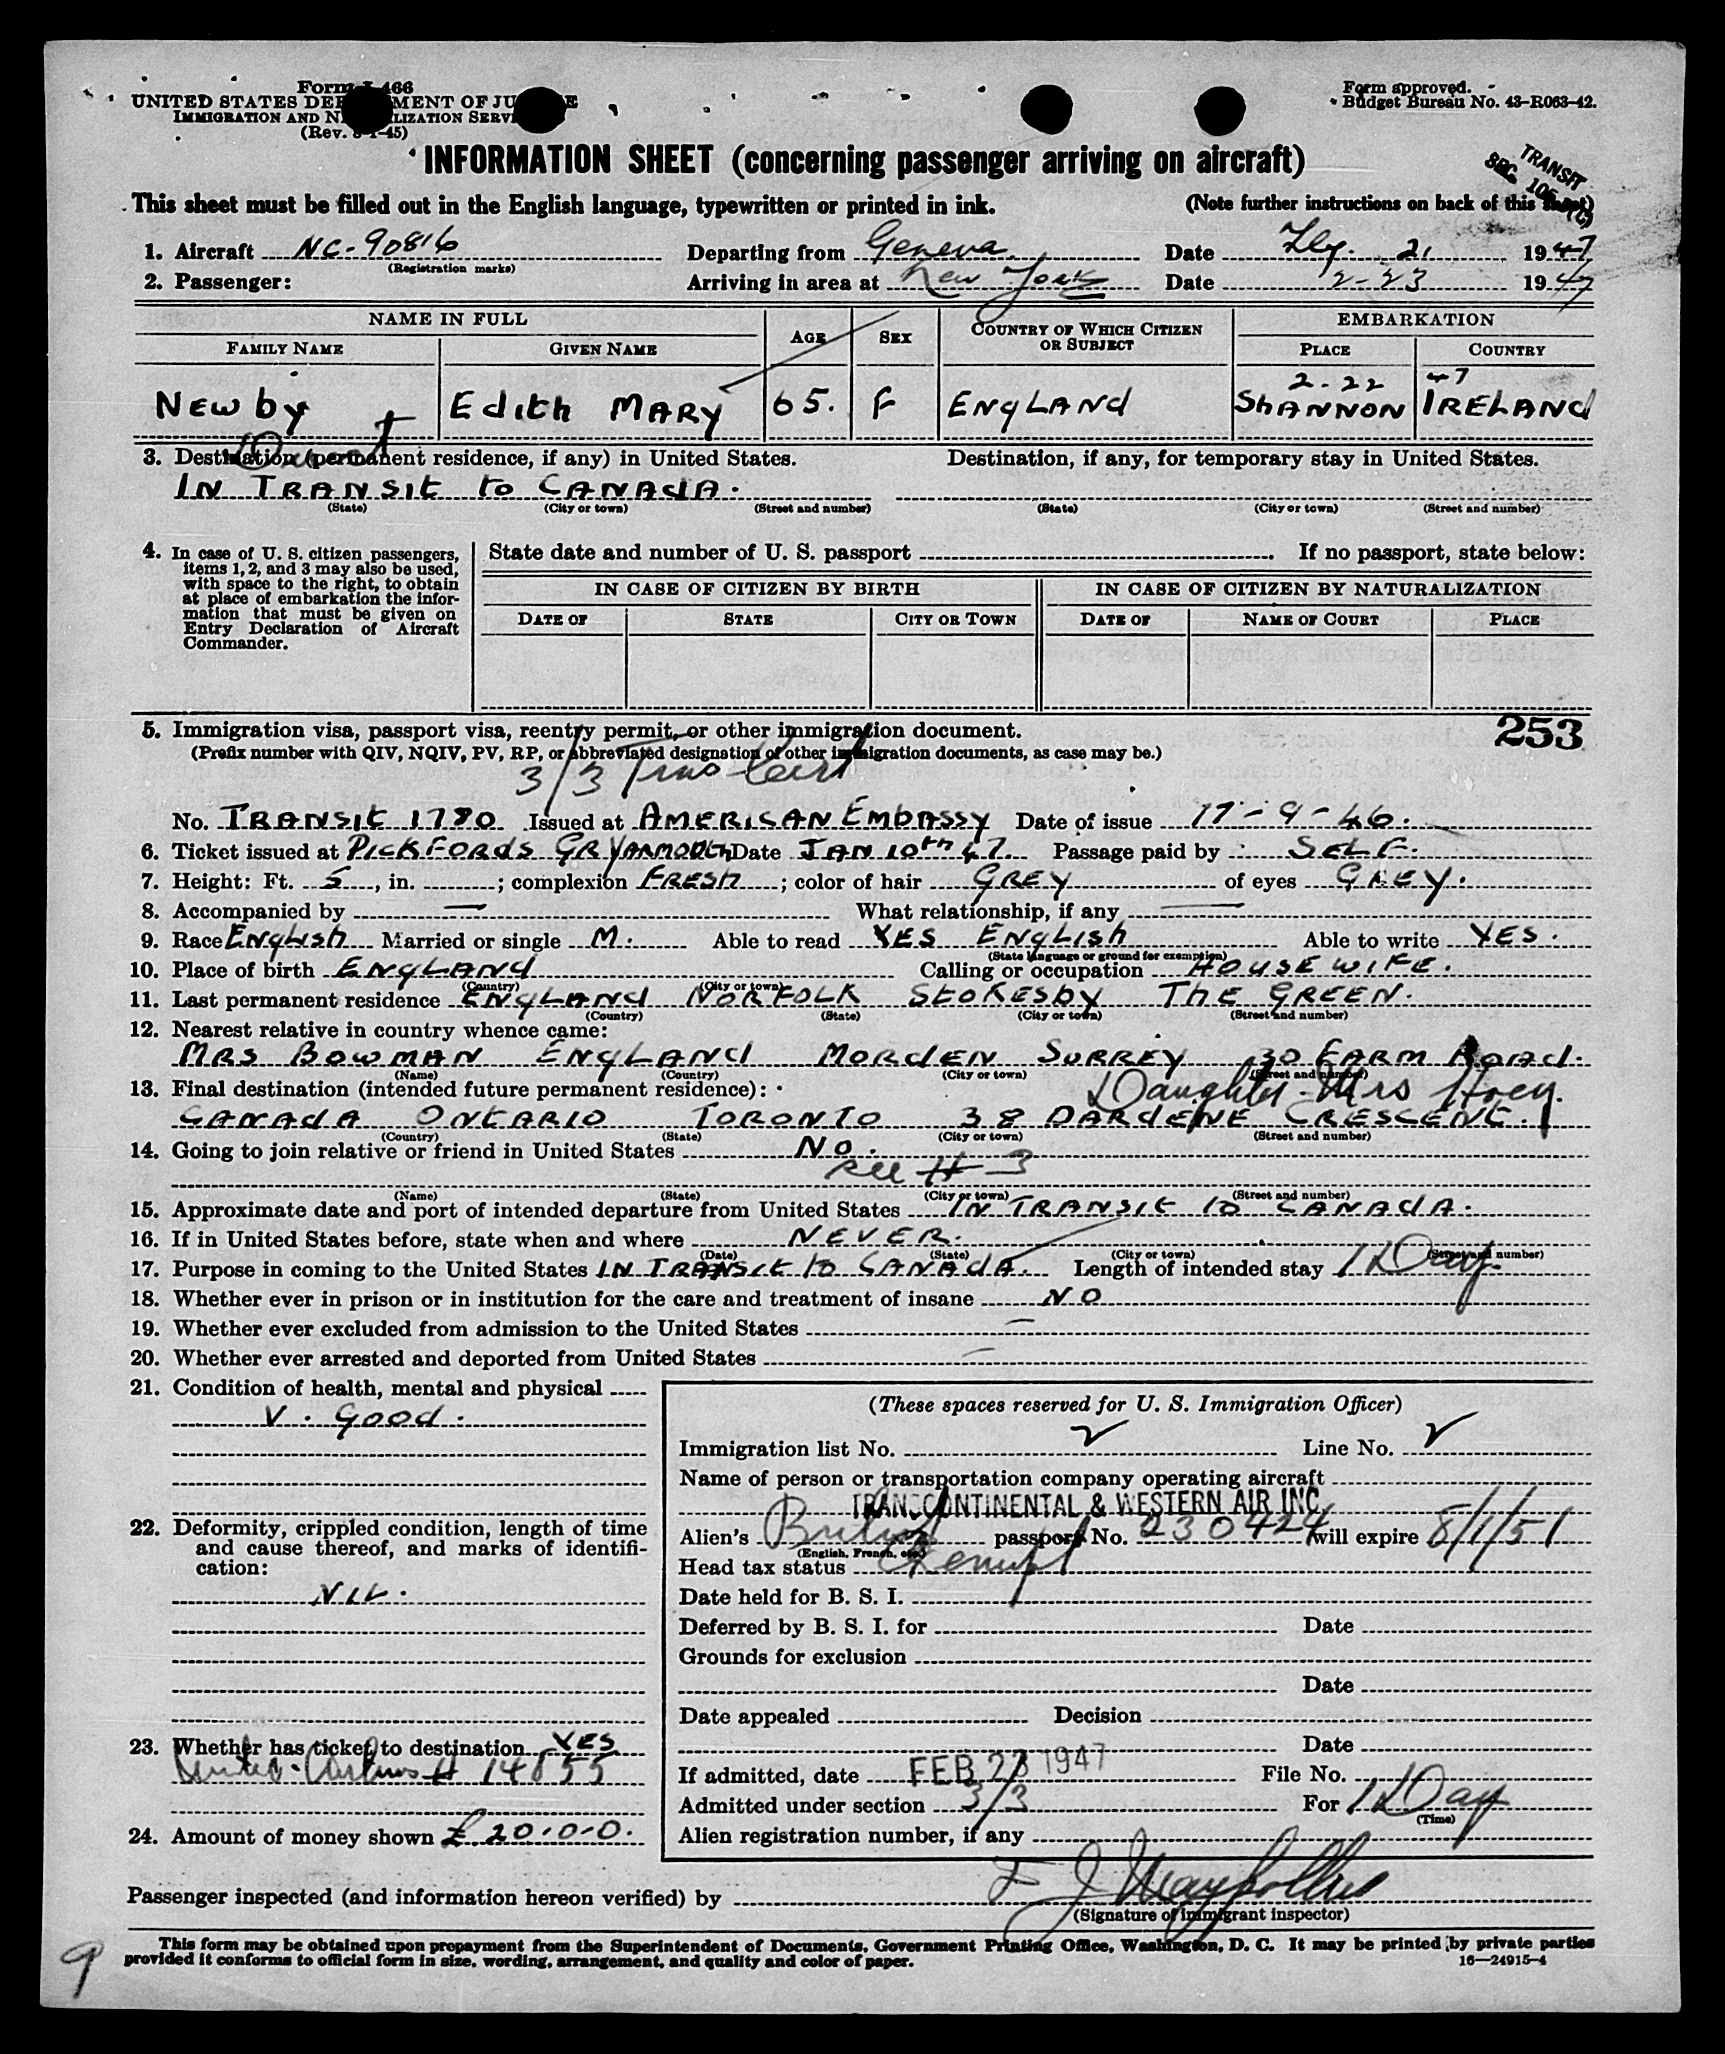 Form I-466
UNITED STATES DEPARTMENT OF JUSTICE
IMMIGRATION AND NATURALIZATION SERVICE
(Rev. 3-1-45)
Form approved.
Budget Bureau No. 43-R063-42.
INFORMATION SHEET (concerning passenger arriving on aircraft)
TRANSIT
SEC. 105
This sheet must be filled out in the English language, typewritten or printed in ink. (Note further instructions on back of this sheet)
1. Aircraft NC-90816 Departing from Geneva Date 21 1947
(Registration marks)
2. Passenger: Arriving in area at New York Date 2-23 1947
NAME IN FULL AGE SEX COUNTRY OF WHICH CITIZEN OR SUBJECT EMBARKATION
FAMILY NAME GIVEN NAME PLACE COUNTRY
2-22 47
Newby Edith MARY 65. F ENGLAND SHANNON IRELAND
3. Destination (permanent residence, if any) in United States. Destination, if any, for temporary stay in United States.
IN TRANSIT to CANADA.
(State) (City or town) (Street and number) (State) (City or town) (Street and number)
4. In case of U. S. citizen passengers, items 1, 2, and 3 may also be used, with space to the right, to obtain at place of embarkation the information that must be given on Entry Declaration of Aircraft Commander.
State date and number of U. S. passport If no passport, state below:
IN CASE OF CITIZEN BY BIRTH IN CASE OF CITIZEN BY NATURALIZATION
DATE OF STATE CITY OR TOWN DATE OF NAME OF COURT PLACE
5. Immigration visa, passport visa, reentry permit, or other immigration document. 253
(Prefix number with QIV, NQIV, PV, RP, or abbreviated designation of other immigration documents, as case may be.)
3/3 Trans Cert
No. TRANSIT 1780 Issued at AMERICAN EMBASSY Date of issue 17-9-46.
6. Ticket issued at PICKFORDS GR YARMOUTH Date JAN 10th 47. Passage paid by SELF.
7. Height: Ft. 5, in. ; complexion FRESH ; color of hair GREY of eyes GREY.
8. Accompanied by — What relationship, if any —
9. Race English Married or single M. Able to read YES ENGLISH Able to write YES.
(State language or ground for exemption)
10. Place of birth ENGLAND Calling or occupation HOUSEWIFE.
(Country) (City or town)
11. Last permanent residence ENGLAND NORFOLK STOKESBY THE GREEN.
(Country) (State) (City or town) (Street and number)
12. Nearest relative in country whence came:
MRS BOWMAN ENGLAND MORDEN SURREY 30 FARM ROAD.
(Name) (Country) (City or town) (Street and number)
13. Final destination (intended future permanent residence): Daughter Mrs
CANADA ONTARIO TORONTO 38 DARDENE CRESCENT.
(Country) (State) (City or town) (Street and number)
14. Going to join relative or friend in United States No.
see # 3
(Name) (State) (City or town) (Street and number)
15. Approximate date and port of intended departure from United States IN TRANSIT to CANADA.
16. If in United States before, state when and where NEVER.
(Date) (State) (City or town) (Street and number)
17. Purpose in coming to the United States IN TRANSIT to CANADA. Length of intended stay 1 Day.
18. Whether ever in prison or in institution for the care and treatment of insane NO
19. Whether ever excluded from admission to the United States —
20. Whether ever arrested and deported from United States —
21. Condition of health, mental and physical
V. Good.
22. Deformity, crippled condition, length of time and cause thereof, and marks of identification:
NIL.
23. Whether has ticket to destination YES
United Airlines # 14855
24. Amount of money shown £ 20-0-0.
(These spaces reserved for U. S. Immigration Officer)
Immigration list No. Line No.
Name of person or transportation company operating aircraft
TRANSCONTINENTAL & WESTERN AIR INC.
Alien's British passport No. 230424 will expire 8/1/51
(English, French, etc.)
Head tax status Exempt
Date held for B. S. I.
Deferred by B. S. I. for Date
Grounds for exclusion
Date
Date appealed Decision
Date
If admitted, date FEB 23 1947 File No.
Admitted under section 3/3 For 1 Day
(Time)
Alien registration number, if any
Passenger inspected (and information hereon verified) by
(Signature of immigrant inspector)
This form may be obtained upon prepayment from the Superintendent of Documents, Government Printing Office, Washington, D. C. It may be printed by private parties
provided it conforms to official form in size, wording, arrangement, and quality and color of paper. 16—24915-4
9